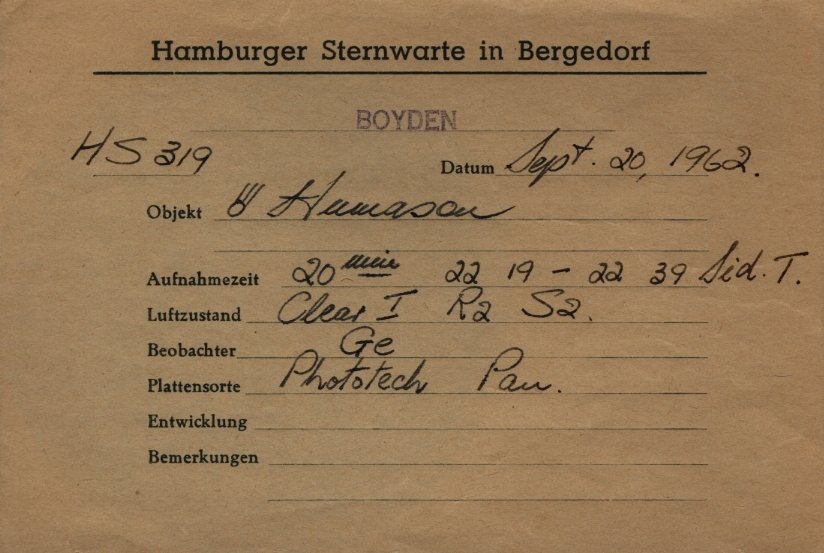 Hamburger Sternwarte in Bergedorf
BOYDEN
HS 319 Datum Sept. 20, 1962.
Objekt ☄ Humason
Aufnahmezeit 20 min 22 19 – 22 39 Sid. T.
Luftzustand Clear I R2 S2.
Beobachter Ge
Plattensorte Phototech Pan.
Entwicklung
Bemerkungen